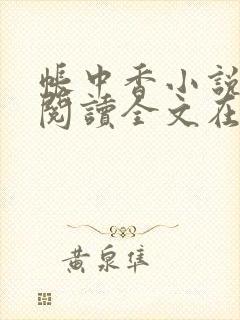 帳中香小說
閱讀全文在
黃泉隼